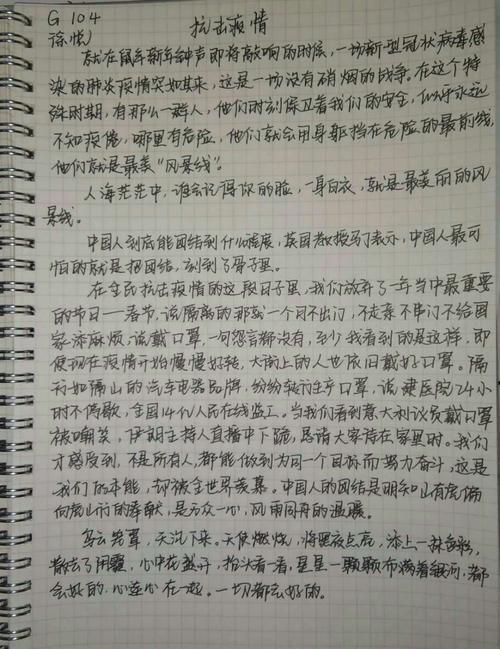 G 104
徐悦
抗击疫情
就在鼠年新年钟声即将敲响的时候，一场新型冠状病毒感
染的肺炎疫情突如其来，这是一场没有硝烟的战争。在这个特
殊时期，有那么一群人，他们时刻保卫着我们的安全，似乎永远
不知疲倦，哪里有危险，他们就会用身躯挡在危险的最前线，
他们就是最美“风景线”。
人海茫茫中，谁会记得你的脸，一身白衣，就是最美丽的风
景线。
中国人到底能团结到什么程度，英国教授马丁表示，中国人最可
怕的就是把团结，刻到了骨子里。
在全民抗击疫情的这段日子里，我们放弃了一年当中最重要
的节日——春节，该隔离的那就一个月不出门，不走亲不串门不给国
家添麻烦，说戴口罩，一句怨言都没有，至少我看到的是这样，即
便现在疫情开始慢慢好转，大街上的人也依旧戴好口罩。隔
行如隔山的汽车电器品牌，纷纷转行生产口罩，说建医院24小
时不停歇，全国14亿人民在线监工。当我们看到意大利议员戴口罩
被嘲笑，伊朗主持人直播中下跪，恳请大家待在家里时。我们
才感受到，不是所有人，都能做到为同一个目标而努力奋斗，这是
我们的本能，却被全世界羡慕。中国人的团结是明知山有虎偏
向虎山行的奉献，是万众一心，风雨同舟的温暖。
乌云笼罩，天沉下来。天使燃烧，将黑夜点亮，添上一抹色彩，
散去了阴霾，心中花盛开，抬头看一看，星星一颗颗布满着银河，都
会好的，心连心在一起。一切都会好的。